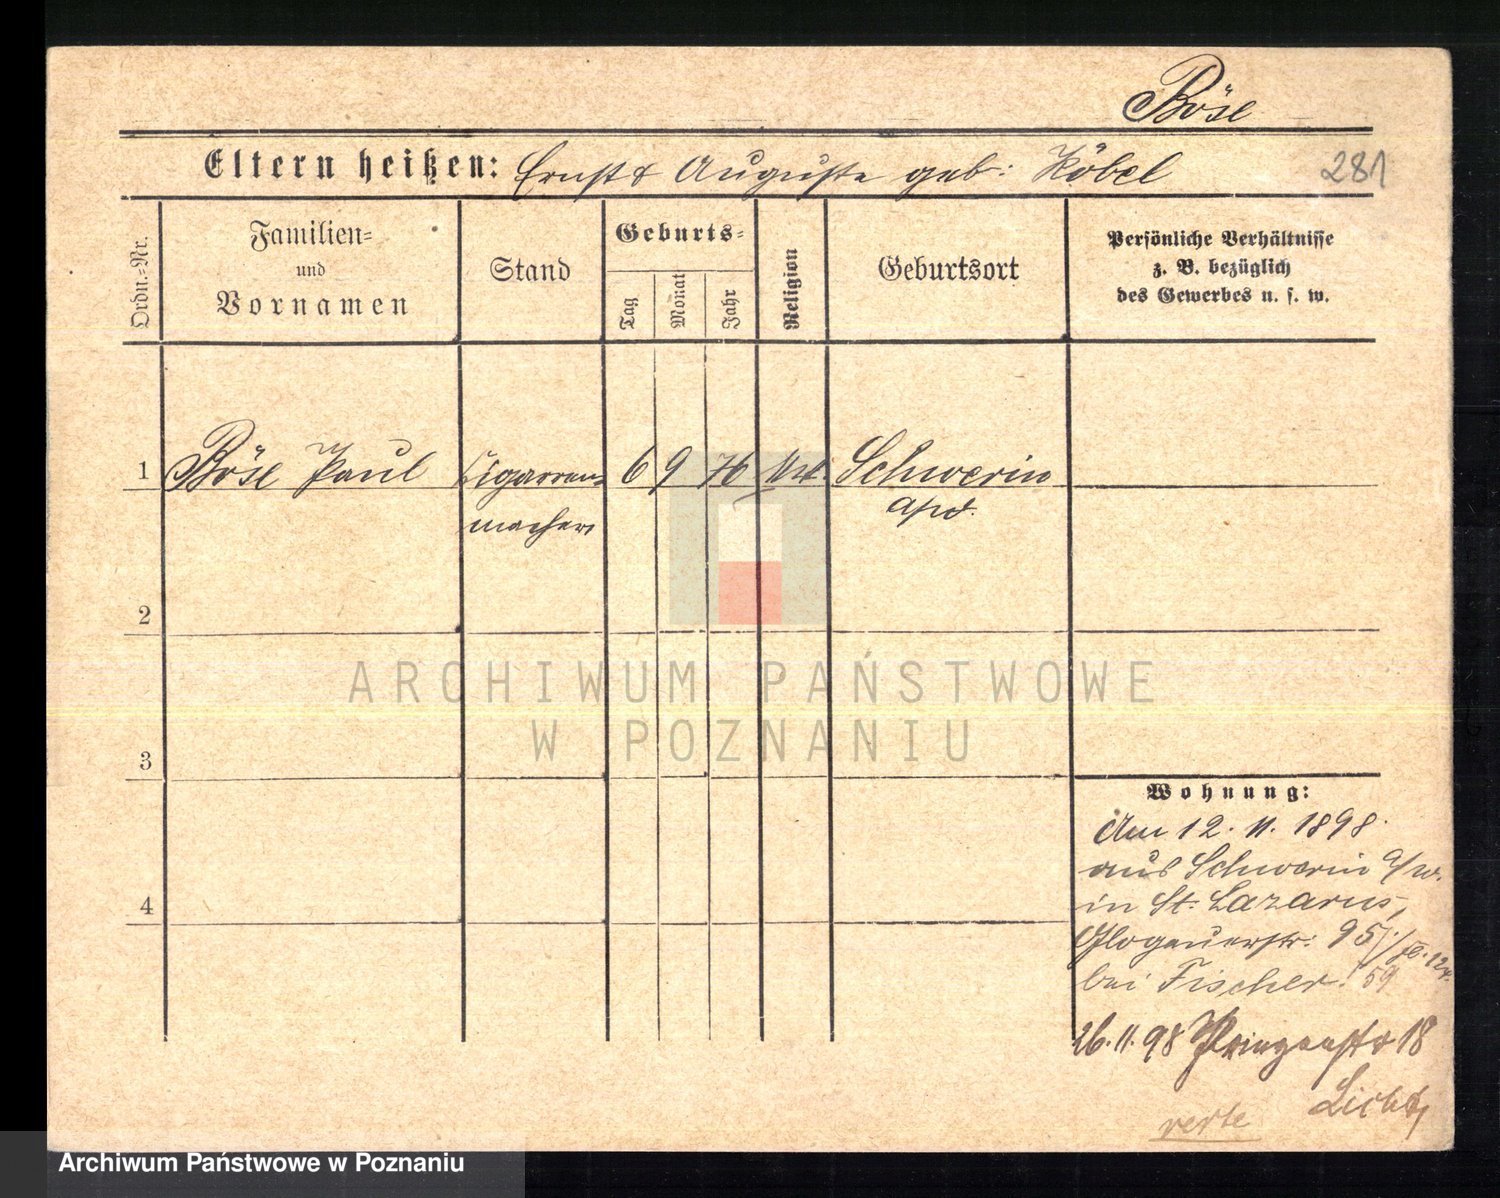 Böse
Eltern heißen: Ernst & Auguste geb: Köbel
281
Ordn.=Nr.
Familien=
und
Vornamen
Stand
Geburts=
Tag
Monat
Jahr
Religion
Geburtsort
Persönliche Verhältnisse
z. B. bezüglich
des Gewerbes u. s. w.
1 Böse Paul Cigarren= 6 9 76 Schwerin
macher
2
3
4
ARCHIWUM PAŃSTWOWE
W POZNANIU
Wohnung:
Am 12. 11. 1898.
aus Schwerin a/w.
in St. Lazarus,
Glogauerstr: 95/
bei Fischer. 59
26.11.98 Prinzenstr 18
Licht,
verte
Archiwum Państwowe w Poznaniu